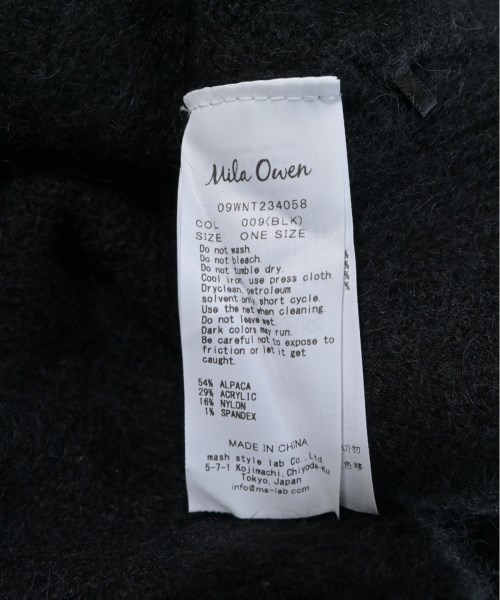 Mila Owen
09WNT234058
COL 009(BLK)
SIZE ONE SIZE
Do not wash.
Do not bleach.
Do not tumble dry.
Cool iron, use press cloth.
Dryclean, petroleum
solvent only, short cycle.
Use the net when cleaning.
Do not leave wet.
Dark colors may run.
Be careful not to expose to
friction or let it get
caught.
54% ALPACA
29% ACRYLIC
16% NYLON
1% SPANDEX
MADE IN CHINA
mash style lab Co., Ltd.
5-7-1 Kojimachi, Chiyoda-Ku
Tokyo, Japan
info@ms-lab.com
%
%
%
%
切勿
色移